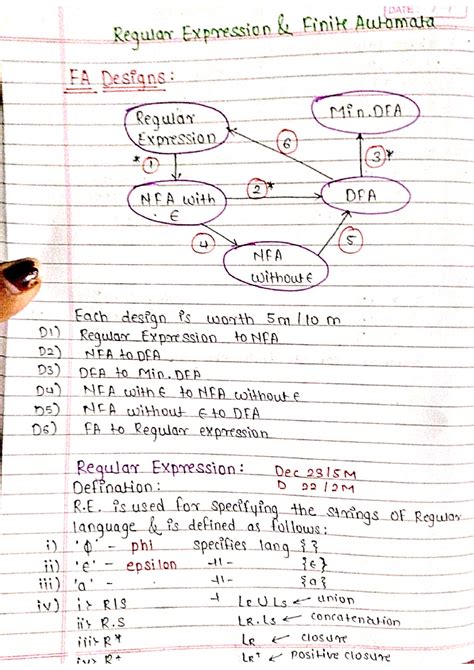 DATE:
Regular Expression & Finite Automata
FA Designs:
Regular
Expression
Min.DFA
6
*1
3*
NFA with
ϵ
2*
DFA
4
5
NFA
without ϵ
Each design is worth 5m/10 m
D1) Regular Expression to NFA
D2) NFA to DFA
D3) DFA to Min. DFA
D4) NFA with ϵ to NFA without ϵ
D5) NFA without ϵ to DFA
D6) FA to Regular expression
Regular Expression: Dec 23/5M
Defination: D 22/2M
R.E. is used for specifying the strings of Regular
language & is defined as follows:
i) 'ϕ' - phi specifies lang { }
ii) 'ϵ' - epsilon -||- {ϵ}
iii) 'a' - -||- {a}
iv) i> R|S LR U LS ← union
ii> R.S LR.LS ← concatenation
iii> R* LR ← closure
iv> R+ LR+ ← positive closure